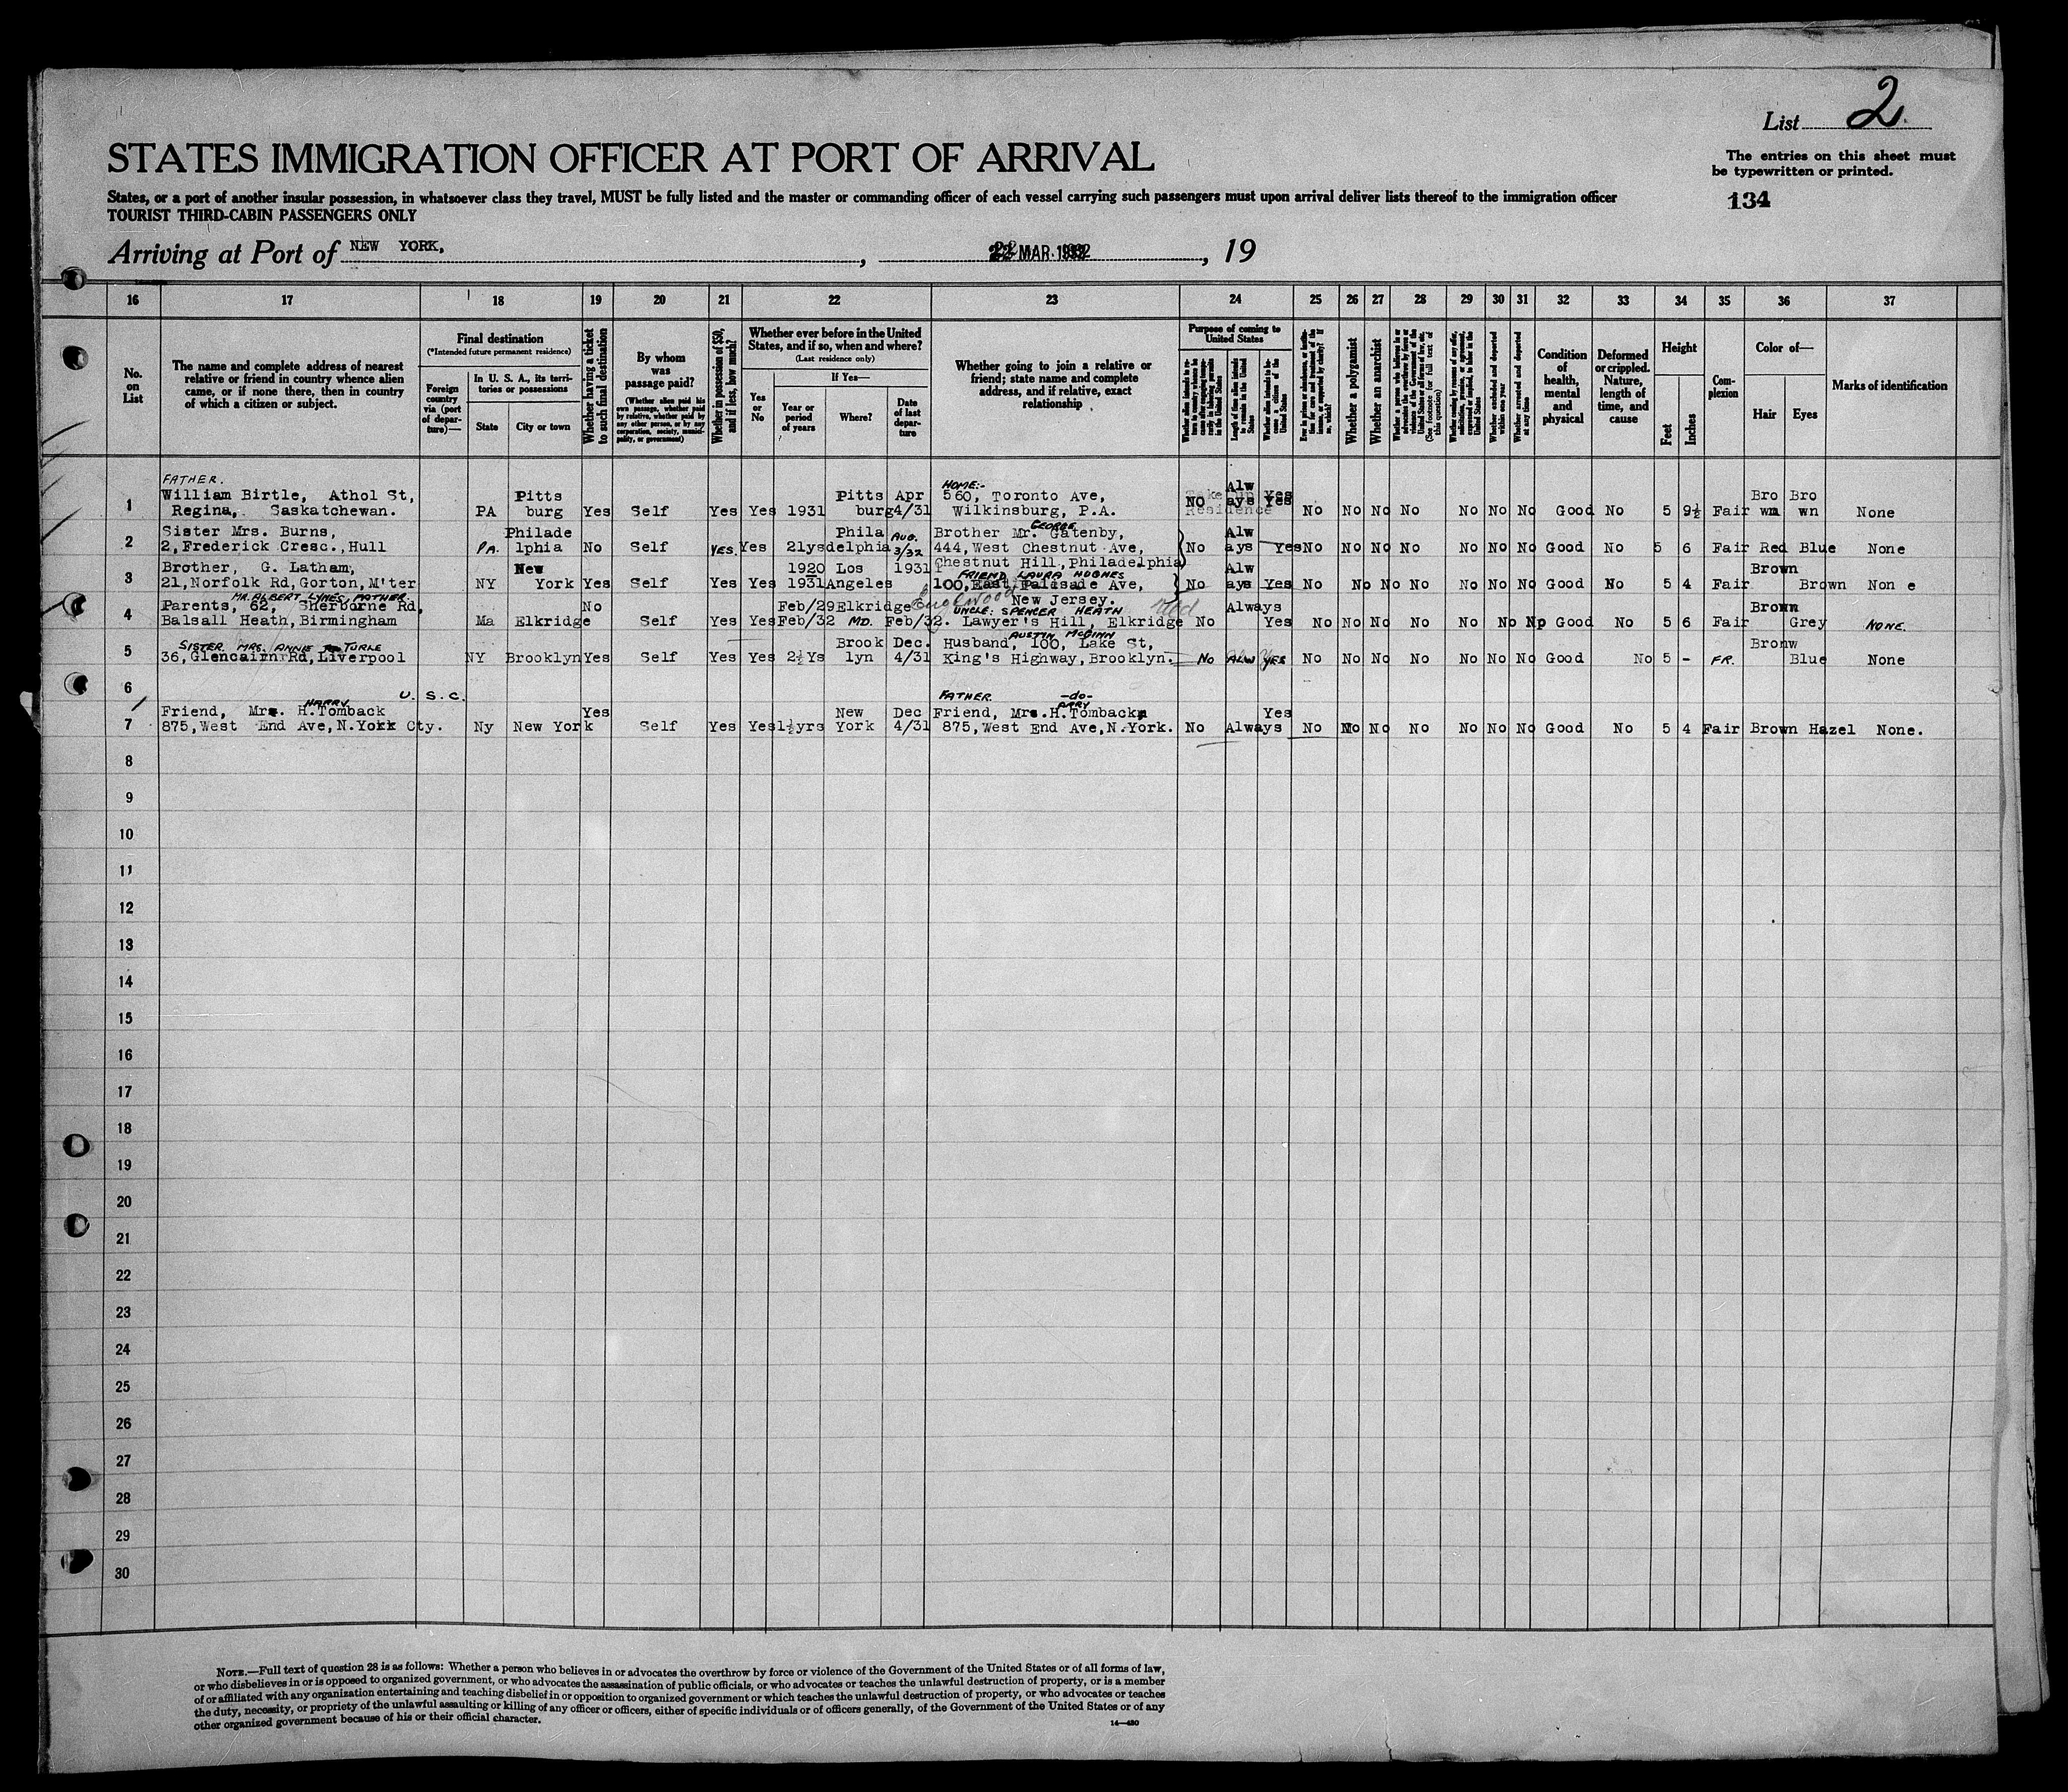 List 2
STATES IMMIGRATION OFFICER AT PORT OF ARRIVAL
The entries on this sheet must
be typewritten or printed.
States, or a port of another insular possession, in whatsoever class they travel, MUST be fully listed and the master or commanding officer of each vessel carrying such passengers must upon arrival deliver lists thereof to the immigration officer
TOURIST THIRD-CABIN PASSENGERS ONLY
134
Arriving at Port of NEW YORK, , 22 MAR 1932 , 19
16 17 18 19 20 21 22 23 24 25 26 27 28 29 30 31 32 33 34 35 36 37
No.
on
List
The name and complete address of nearest
relative or friend in country whence alien
came, or if none there, then in country
of which a citizen or subject.
Final destination
(*Intended future permanent residence)
Foreign
country
via (port
of depar-
ture)—
In U. S. A., its terri-
tories or possessions
State
City or town
Whether having a ticket
to such final destination
By whom
was
passage paid?
(Whether alien paid his
own passage, whether paid
by relative, whether paid by
any other person, or by any
corporation, society, munici-
pality, or government)
Whether in possession of $50,
and if less, how much?
Whether ever before in the United
States, and if so, when and where?
(Last residence only)
Yes
or
No
If Yes—
Year or
period
of years
Where?
Date
of last
depar-
ture
Whether going to join a relative or
friend; state name and complete
address, and if relative, exact
relationship
Purpose of coming to
United States
Whether a polygamist
Whether an anarchist
Whether excluded and deported
within one year
Whether arrested and deported
at any time
Condition
of
health,
mental
and
physical
Deformed
or crippled.
Nature,
length of
time, and
cause
Height
Feet
Inches
Com-
plexion
Color of—
Hair
Eyes
Marks of identification
FATHER. HOME:- Alw
William Birtle, Athol St, Pitts Pitts Apr 560, Toronto Ave, ays Yes Bro Bro
1 Regina, Saskatchewan. PA burg Yes Self Yes Yes 1931 burg 4/31 Wilkinsburg, P.A. No No No No No No No No Good No 5 9½ Fair wn wn None
Sister Mrs. Burns, Philade Phila AUG. Brother Mr. GEORGE Gatenby, Alw
2 2, Frederick Cresc., Hull PA. lphia No Self YES. Yes 21ys delphia 3/32 444, West Chestnut Ave, No ays Yes No No No No No No No Good No 5 6 Fair Red Blue None
Brother, G. Latham, New 1920 Los 1931 Chestnut Hill, Philadelphia Alw Brown
FRIEND LAURA HUGHES
3 21, Norfolk Rd, Gorton, M'ter NY York Yes Self Yes Yes 1931 Angeles 100, East Palisade Ave, No ays Yes No No No No No No No Good No 5 4 Fair Brown None
MR. ALBERT LYNES, FATHER. Englewood New Jersey.
Parents, 62, Sherborne Rd, No Feb/29 Elkridge UNCLE: SPENCER HEATH Always Brown
4 Balsall Heath, Birmingham Ma Elkridge Self Yes Yes Feb/32 MD. Feb/32. Lawyer's Hill, Elkridge No Yes No No No No No No No Good No 5 6 Fair Grey NONE.
SISTER. MRS. ANNIE TURLE Brook Dec. Husband, AUSTIN McGINN 100, Lake St, Bronw
5 36, Glencairn Rd, Liverpool NY Brooklyn Yes Self Yes Yes 2½Ys lyn 4/31 King's Highway, Brooklyn. No ALW YES No No No No No No No Good No 5 - FR. Blue None
6 U. S. C. FATHER. -do-
Friend, Mr. HARRY H. Tomback Yes New Dec Friend, Mr. HARRY H. Tomback Yes
7 875, West End Ave, N. York Cty. Ny New York Self Yes Yes 1½yrs York 4/31 875, West End Ave, N. York. No Always No No No No No No No Good No 5 4 Fair Brown Hazel None.
8
9
10
11
12
13
14
15
16
17
18
19
20
21
22
23
24
25
26
27
28
29
30
NOTE.—Full text of question 28 is as follows: Whether a person who believes in or advocates the overthrow by force or violence of the Government of the United States or of all forms of law,
or who disbelieves in or is opposed to organized government, or who advocates the assassination of public officials, or who advocates or teaches the unlawful destruction of property, or is a member
of or affiliated with any organization entertaining and teaching disbelief in or opposition to organized government or which teaches the unlawful destruction of property, or who advocates or teaches
the duty, necessity, or propriety of the unlawful assaulting or killing of any officer or officers, either of specific individuals or of officers generally, of the Government of the United States or of any
other organized government because of his or their official character.
14—480